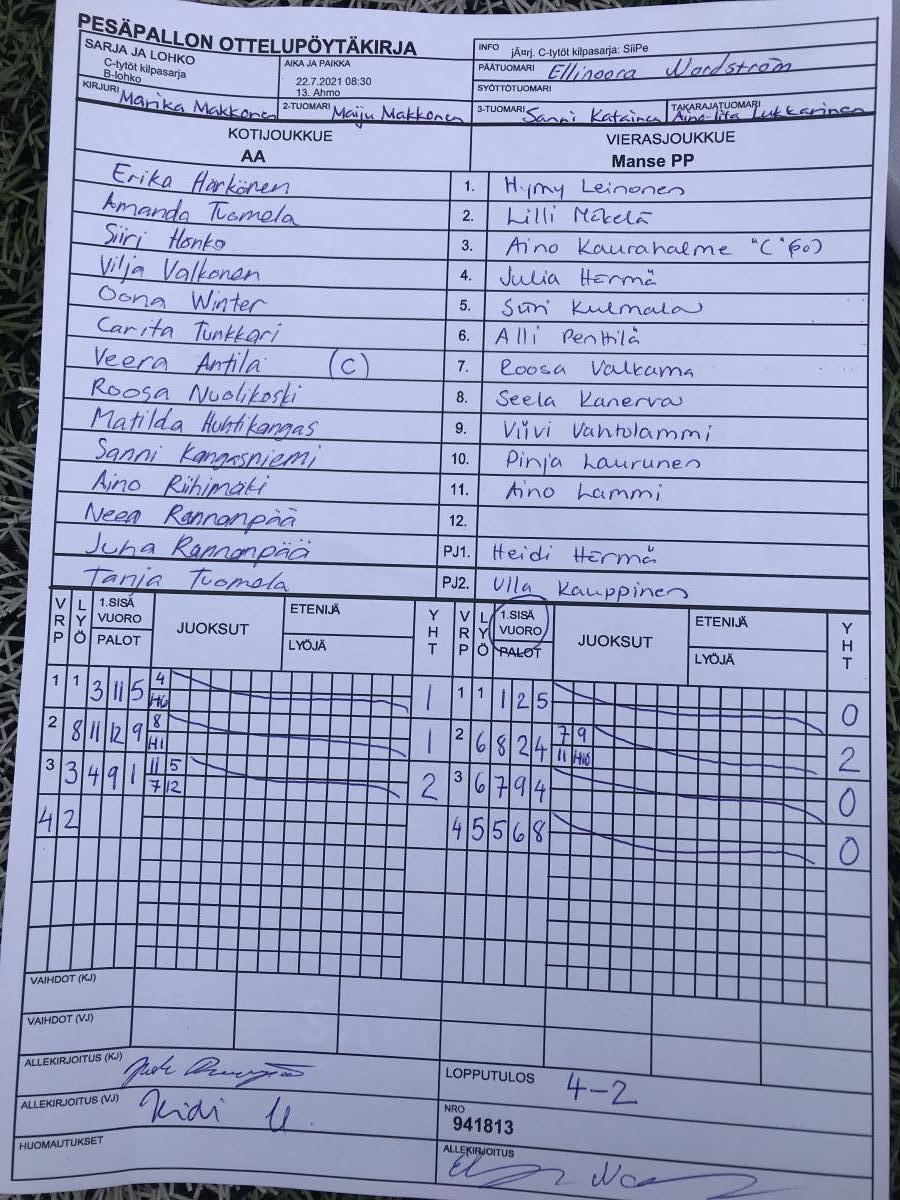 PESÄPALLON OTTELUPÖYTÄKIRJA
SARJA JA LOHKO
C-tytöt kilpasarja
B-lohko
AIKA JA PAIKKA
22.7.2021 08:30
13. Ahmo
INFO jÄ¤rj. C-tytöt kilpasarja: SiiPe
PÄÄTUOMARI Ellinoora Nordström
SYÖTTÖTUOMARI
KIRJURI Marika Makkonen
2-TUOMARI Maiju Makkonen
3-TUOMARI Sanni Katainen
TAKARAJATUOMARI Aino-Iita Lukkarinen
KOTIJOUKKUE VIERASJOUKKUE
AA Manse PP
Erika Härkönen 1. Hymy Leinonen
Amanda Tuomela 2. Lilli Mäkelä
Siiri Honko 3. Aino Kaurahalme "C"
Vilja Valkonen 4. Julia Härmä
Oona Winter 5. Siiri Kulmala
Carita Tunkkari 6. Alli Penttilä
Veera Antila (C) 7. Roosa Valkama
Roosa Nuolikoski 8. Seela Kanerva
Matilda Huhtikangas 9. Viivi Vahtolammi
Sanni Kangasniemi 10. Pinja Laurunen
Aino Riihimäki 11. Aino Lammi
Neea Rannanpää 12.
Juha Rannanpää PJ1. Heidi Härmä
Tanja Tuomela PJ2. Ulla Kauppinen
VRP LYÖ 1.SISÄ VUORO PALOT JUOKSUT ETENIJÄ LYÖJÄ YHT VRP LYÖ 1.SISÄ VUORO PALOT JUOKSUT ETENIJÄ LYÖJÄ YHT
1 1 3 11 5 4 H6 1 1 1 1 2 5 0
2 8 11 12 9 8 H1 1 2 6 8 2 4 7 9 11 H10 2
3 3 4 9 1 11 5 7 12 2 3 6 7 9 4 0
4 2 4 5 5 6 8 0
VAIHDOT (KJ)
VAIHDOT (VJ)
ALLEKIRJOITUS (KJ)
LOPPUTULOS 4-2
ALLEKIRJOITUS (VJ) Heidi
NRO
941813
HUOMAUTUKSET
ALLEKIRJOITUS